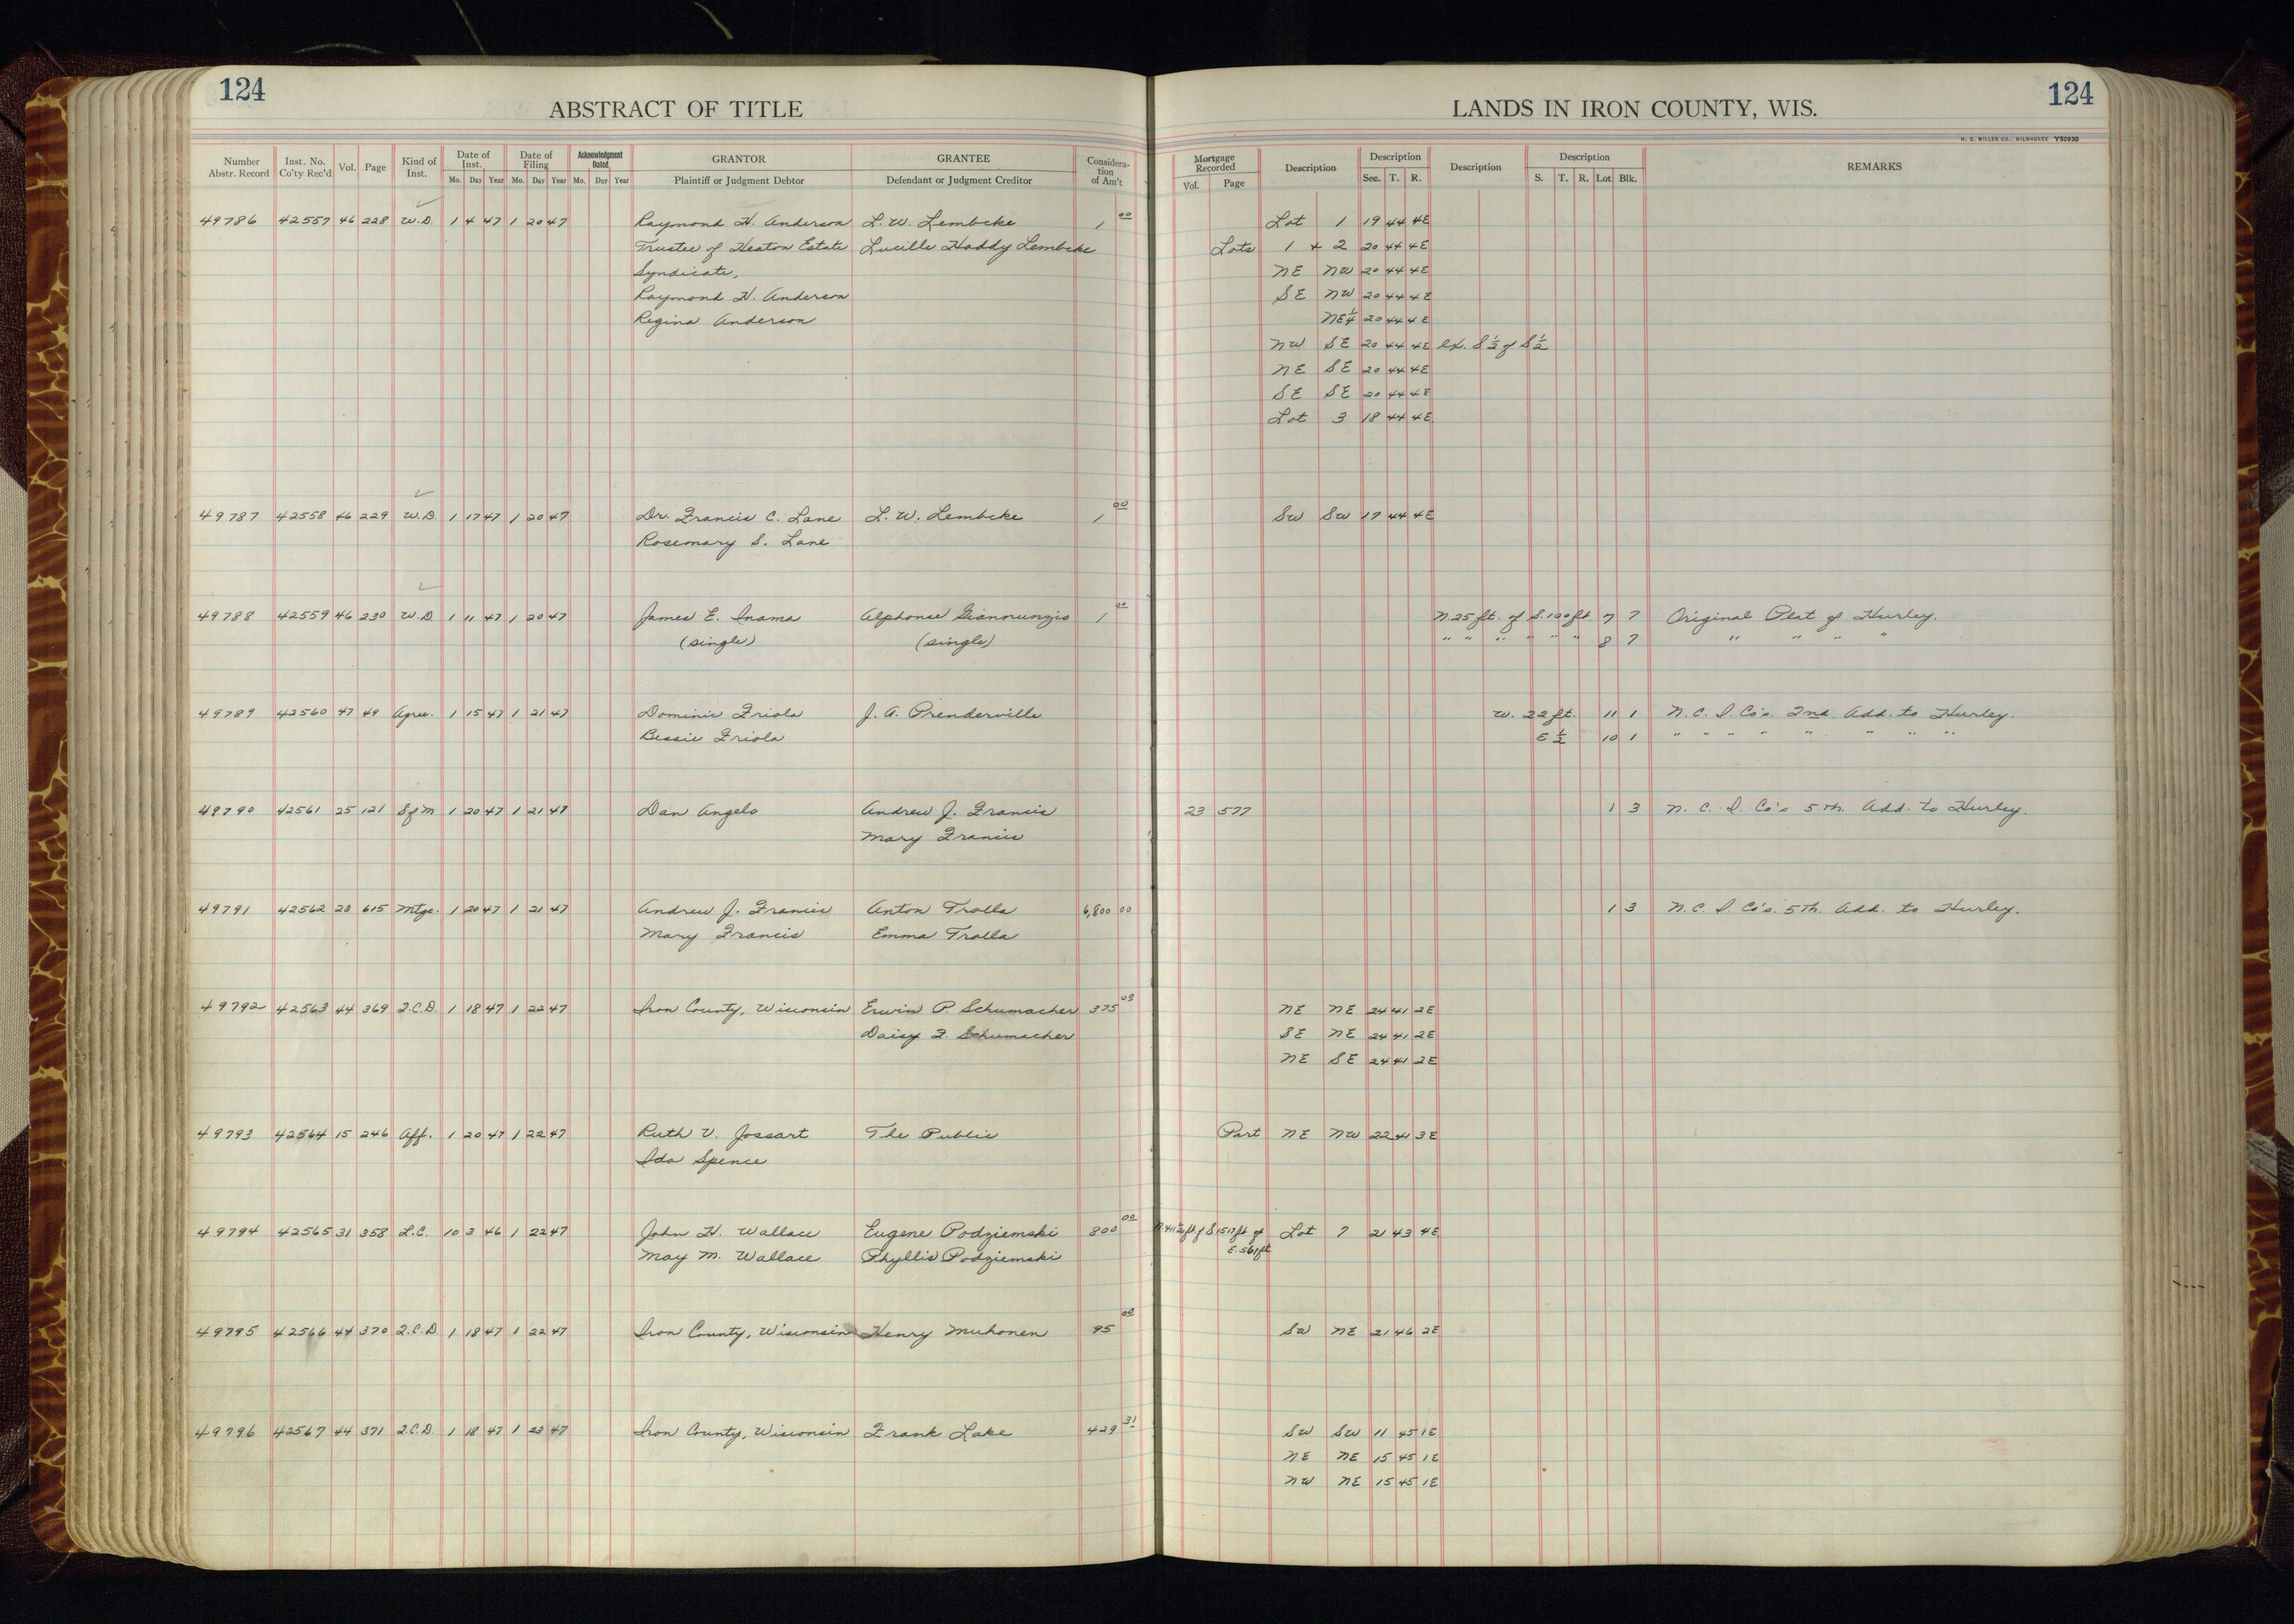 124
ABSTRACT OF TITLE
LANDS IN IRON COUNTY, WIS.
124
H. C. MILLER CO., MILWAUKEE Y50930
Number Abstr. Record
Inst. No. Co'ty Rec'd
Vol.
Page
Kind of Inst.
Date of Inst.
Mo. Day Year
Date of Filing
Mo. Day Year
Acknowledgment Dated
Mo. Day Year
GRANTOR
Plaintiff or Judgment Debtor
GRANTEE
Defendant or Judgment Creditor
Considera-tion of Am't
Mortgage Recorded
Vol. Page
Description
Description
Sec. T. R.
Description
Description
S. T. R. Lot Blk.
REMARKS
49786 42557 46 228 W.D. 1 4 47 1 20 47 Raymond H. Anderson L. W. Lembcke 1 00 Lot 1 19 44 4E
Trustee of Heaton Estate Lucille Haddy Lembcke Lots 1 + 2 20 44 4E
Syndicate, NE NW 20 44 4E
Raymond H. Anderson SE NW 20 44 4E
Regina Anderson NE 1/4 20 44 4E
NW SE 20 44 4E ex. S 1/2 of S 1/2
NE SE 20 44 4E
SE SE 20 44 4E
Lot 3 18 44 4E
49787 42558 46 229 W.D. 1 17 47 1 20 47 Dr. Francis C. Lane L. W. Lembcke 1 00 SW SW 17 44 4E
Rosemary S. Lane
49788 42559 46 230 W.D. 1 11 47 1 20 47 James E. Inama Alphonse Giannunzio 1 00 N. 25 ft. of S. 100 ft. 7 7 Original Plat of Hurley.
(single) (single) " " " " " " 8 7 " " " "
49789 42560 47 49 Agree. 1 15 47 1 21 47 Dominic Friola J. A. Prenderville W. 22 ft. 11 1 N. C. I. Co's. 2nd. Add. to Hurley.
Bessie Friola E 1/2 10 1 " " " " " " " "
49790 42561 25 121 S of M 1 20 47 1 21 47 Dan Angelo Andrew J. Francis 23 577 1 3 N. C. I. Co's 5th. Add. to Hurley.
Mary Francis
49791 42562 23 615 Mtge. 1 20 47 1 21 47 Andrew J. Francis Anton Trolla 6,800 00 1 3 N. C. I. Co's. 5th. Add. to Hurley.
Mary Francis Emma Trolla
49792 42563 44 369 Q.C.D. 1 18 47 1 22 47 Iron County, Wisconsin Erwin P. Schumacher 375 00 NE NE 24 41 2E
Daisy F. Schumacher SE NE 24 41 2E
NE SE 24 41 2E
49793 42564 15 246 Aff. 1 20 47 1 22 47 Ruth V. Jossart The Public Part NE NW 22 41 3E
Ida Spence
49794 42565 31 358 L.C. 10 3 46 1 22 47 John H. Wallace Eugene Podziemski 800 00 ft of S 1517 ft of Lot 7 21 43 4E
May M. Wallace Phyllis Podziemski E. 561 ft
49795 42566 44 370 Q.C.D. 1 18 47 1 22 47 Iron County, Wisconsin Henry Muhonen 95 00 SW NE 21 46 2E
49796 42567 44 371 Q.C.D. 1 18 47 1 23 47 Iron County, Wisconsin Frank Lake 429 31 SW SW 11 45 1E
NE NE 15 45 1E
NW NE 15 45 1E